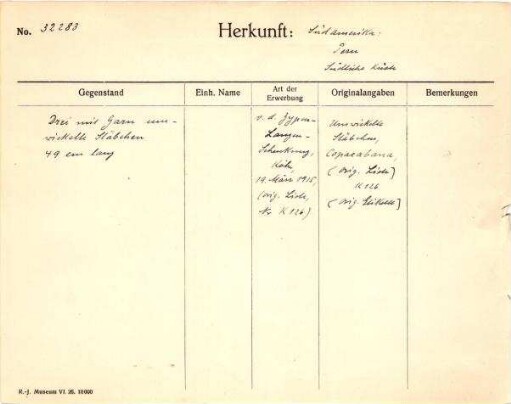 No. 32283
Herkunft: Südamerika.
Peru
Südliche Küste
Gegenstand Einh. Name Art der Erwerbung Originalangaben Bemerkungen
Drei mit Garn um-
wickelte Stäbchen
49 cm lang
v. d. Zypen-
Langen-
Schenkung,
Köln,
19. März 1915,
(orig. Liste,
No K 126)
Umwickelte
Stäbchen,
Copacabana,
(orig. Liste)
K 126
(orig. Etikett)
R.-J. Museum VI. 25. 10000